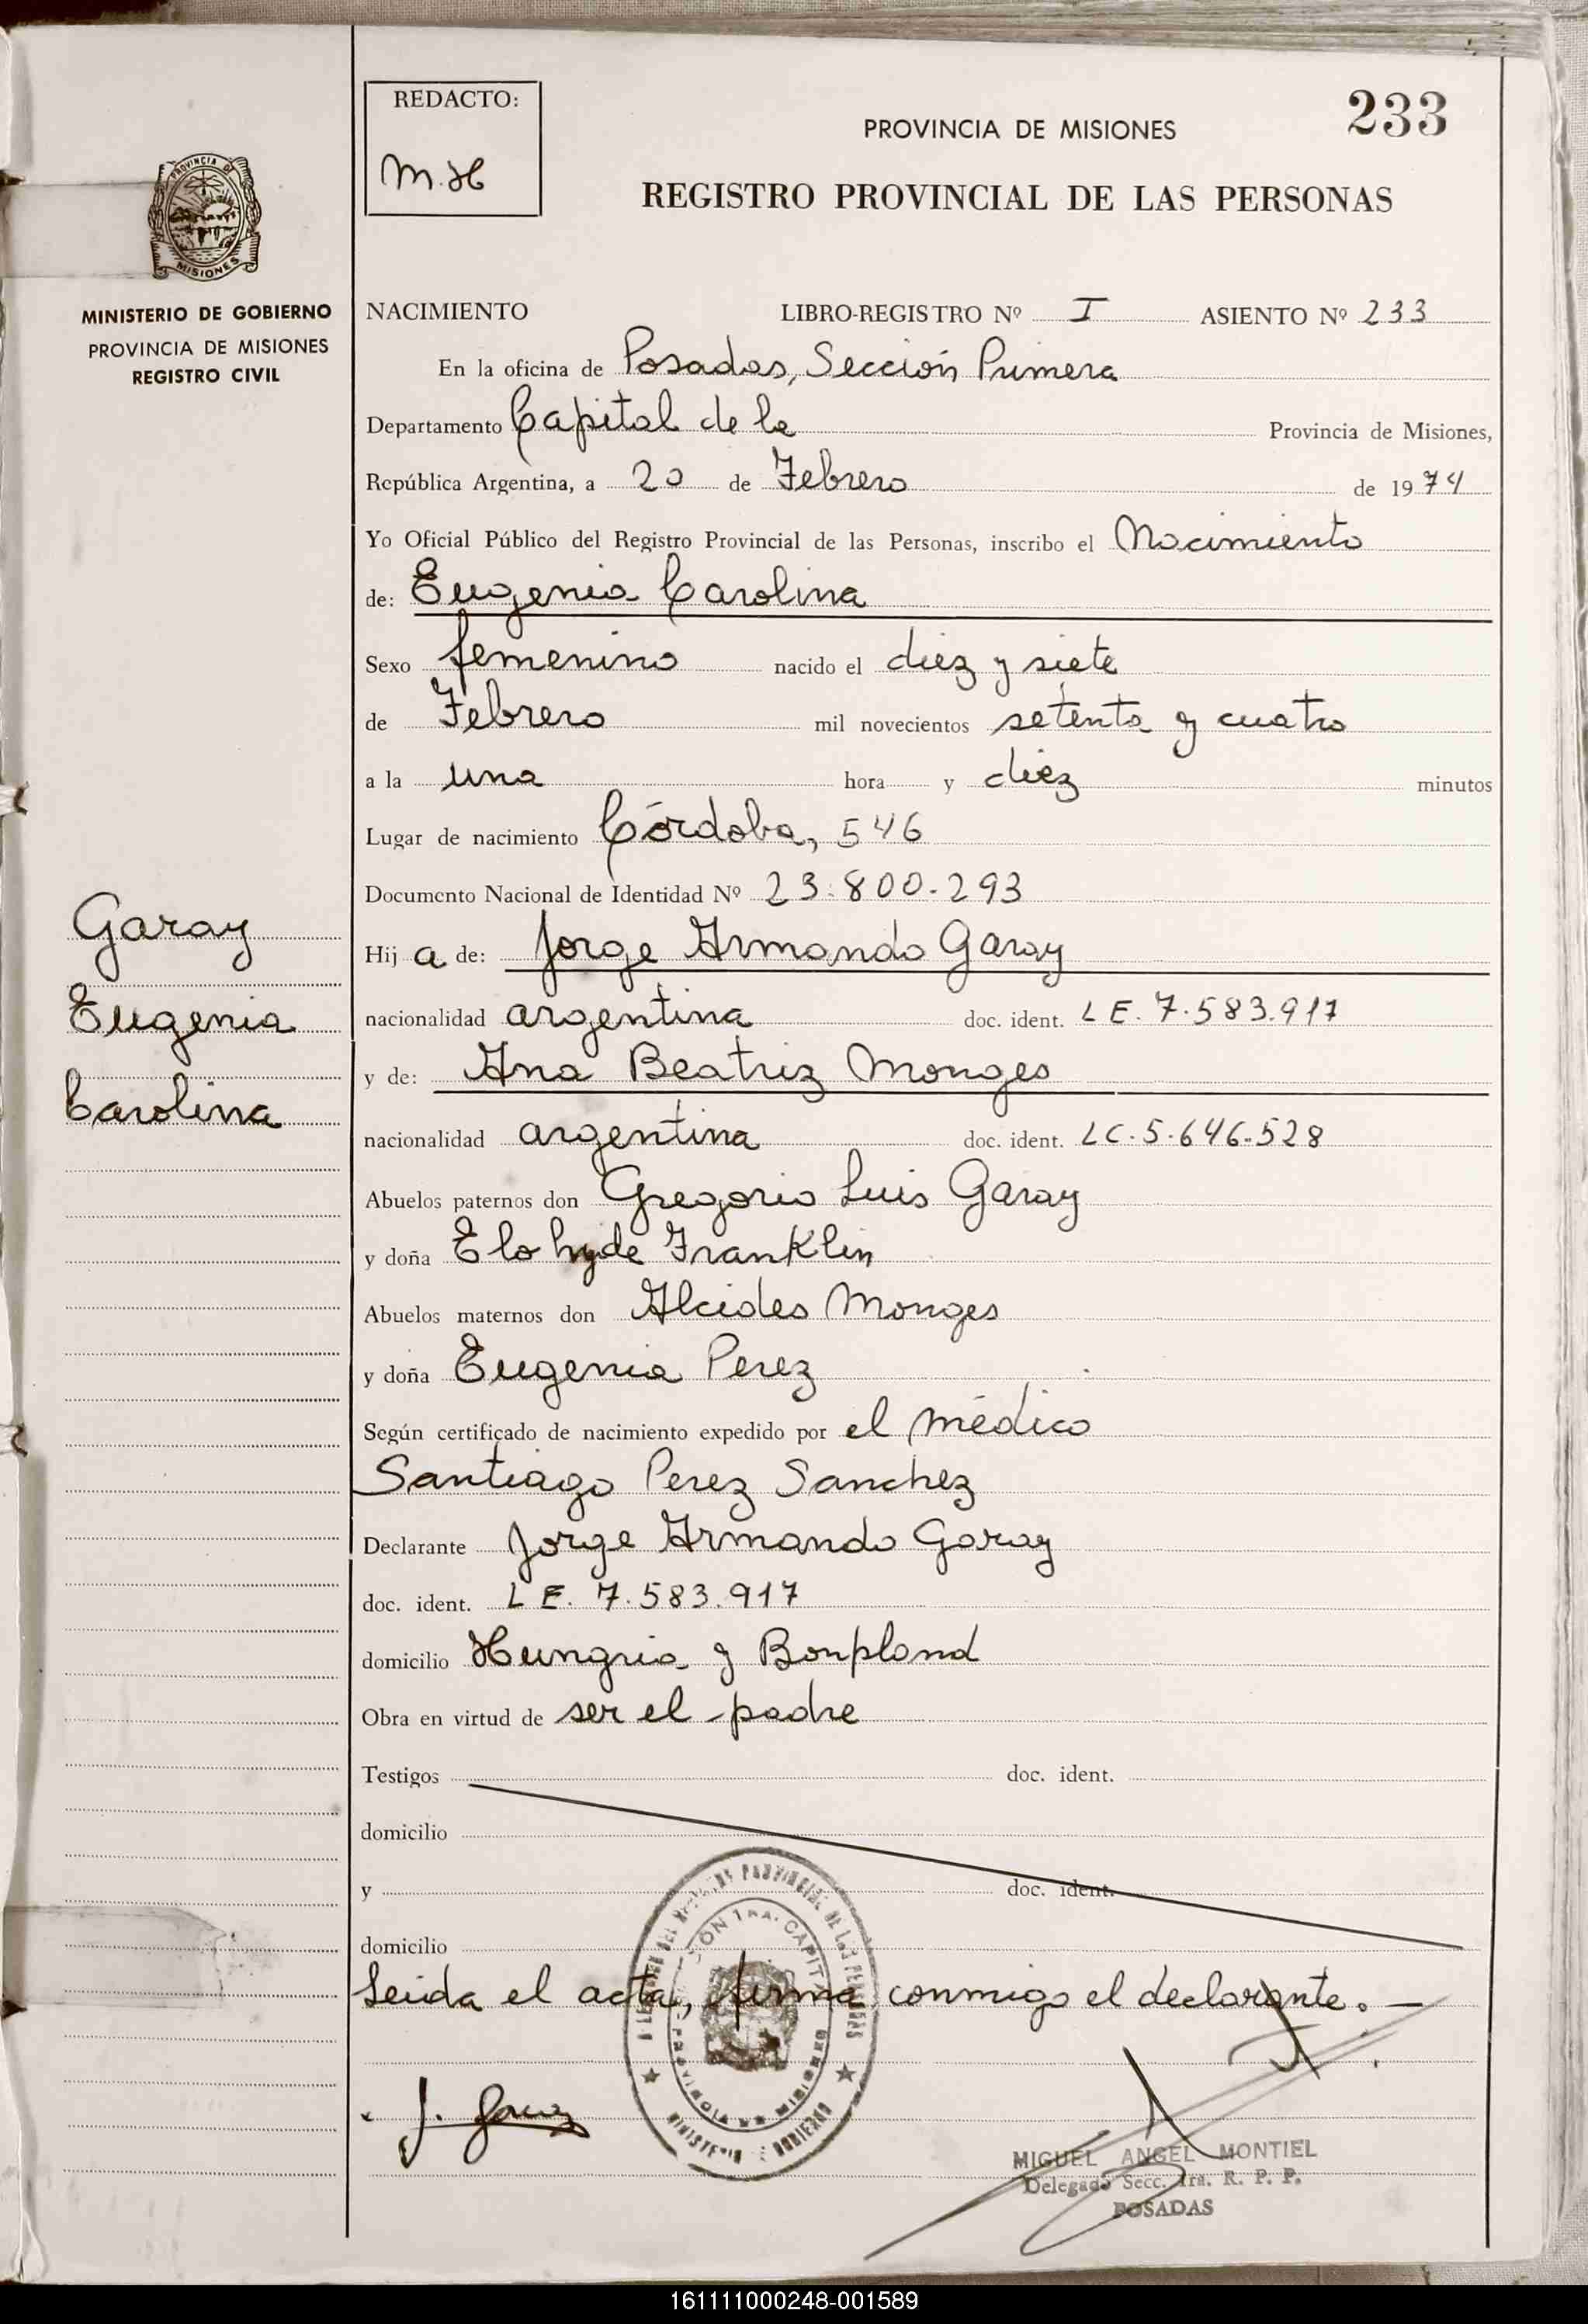 REDACTO:
M.H
PROVINCIA DE MISIONES
233
REGISTRO PROVINCIAL DE LAS PERSONAS
PROVINCIA DE
MISIONES
MINISTERIO DE GOBIERNO
PROVINCIA DE MISIONES
REGISTRO CIVIL
NACIMIENTO LIBRO-REGISTRO Nº I ASIENTO Nº 233
En la oficina de Posadas, Sección Primera
Departamento Capital de la Provincia de Misiones,
República Argentina, a 20 de Febrero de 1974
Yo Oficial Público del Registro Provincial de las Personas, inscribo el Nacimiento
de: Eugenia Carolina
Sexo femenino nacido el diez y siete
de Febrero mil novecientos setenta y cuatro
a la una hora y diez minutos
Lugar de nacimiento Córdoba, 546
Documento Nacional de Identidad Nº 23.800.293
Garay
Eugenia
Carolina
Hij a de: Jorge Armando Garay
nacionalidad argentina doc. ident. LE. 7.583.917
y de: Ana Beatriz Monges
nacionalidad argentina doc. ident. LC.5.646.528
Abuelos paternos don Gregorio Luis Garay
y doña Elohyde Franklin
Abuelos maternos don Alcides Monges
y doña Eugenia Perez
Según certificado de nacimiento expedido por el médico
Santiago Perez Sanchez
Declarante Jorge Armando Garay
doc. ident. LE. 7.583.917
domicilio Hungria y Bonpland
Obra en virtud de ser el padre
Testigos doc. ident.
domicilio
y doc. ident.
domicilio
Leida el acta, firma conmigo el declarante. —
PROVINCIAL DE LAS PERSONAS
PROVINCIA DE MISIONES
MINISTERIO DE GOBIERNO
J. Garay
MIGUEL ANGEL MONTIEL
Delegado Secc. 1ra. R. P. P.
POSADAS
161111000248-001589